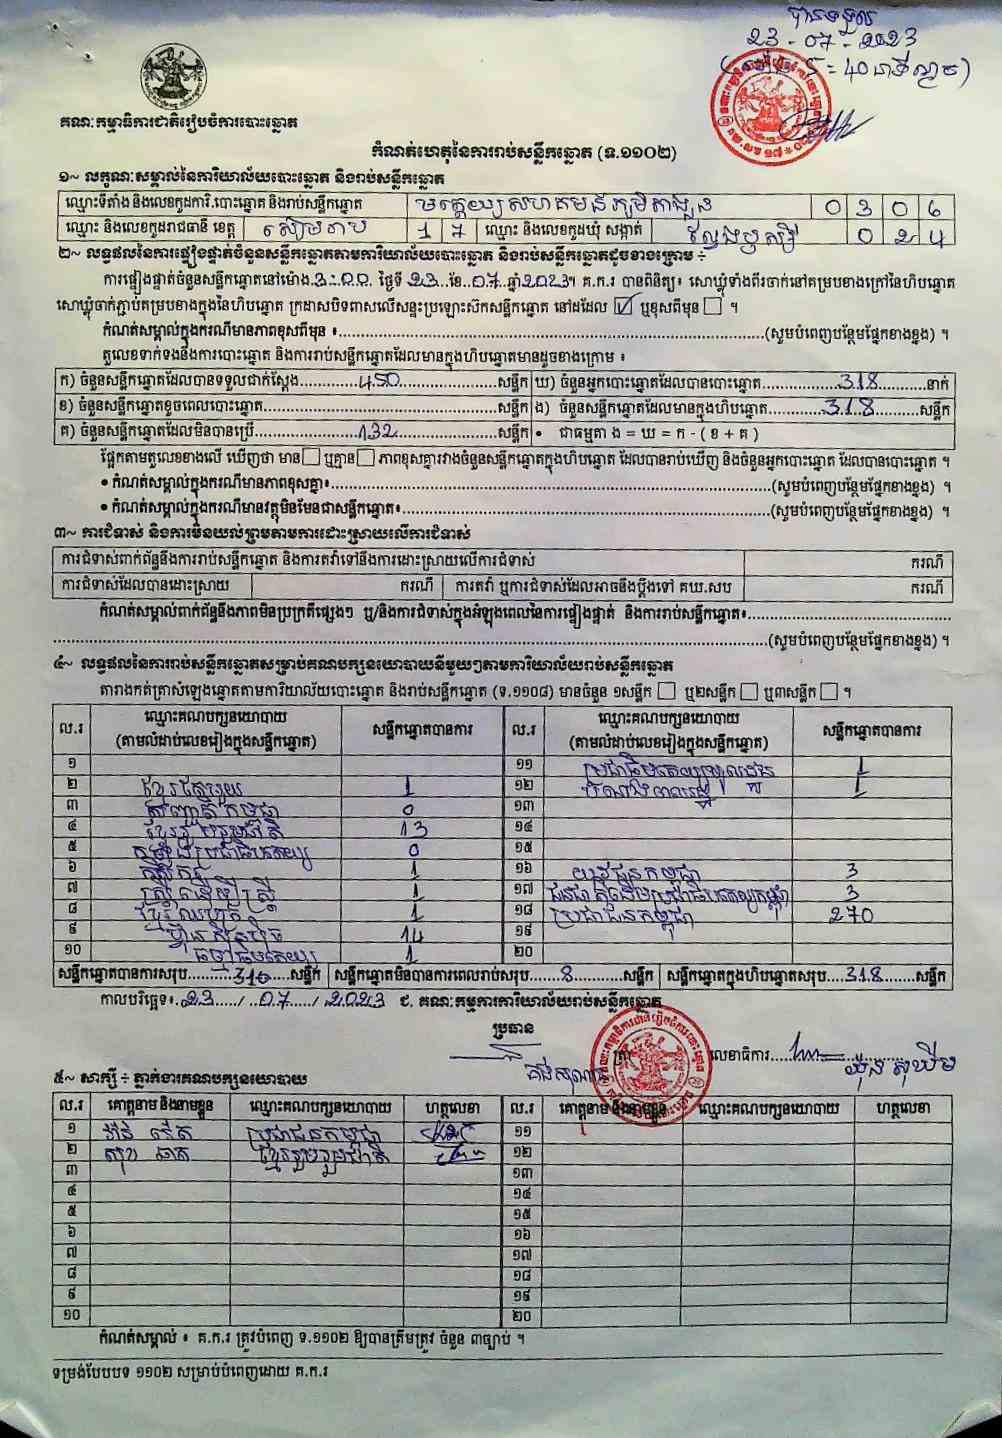 បានទទួល
23 - 07 - 2023
គណៈកម្មាធិការជាតិរៀបចំការបោះឆ្នោត
កំណត់ហេតុនៃការរាប់សន្លឹកឆ្នោត (ទ.១១០២)
១~ លក្ខណៈសម្គាល់នៃការិយាល័យបោះឆ្នោត និងរាប់សន្លឹកឆ្នោត
ឈ្មោះទីតាំង និងលេខកូដការិ.បោះឆ្នោត និងរាប់សន្លឹកឆ្នោត 0 3 0 6
ឈ្មោះ និងលេខកូដរាជធានី ខេត្ត សៀមរាប 1 7 ឈ្មោះ និងលេខកូដឃុំ សង្កាត់ ល្វែងឫស្សី 0 2 4
២~ លទ្ធផលនៃការផ្ទៀងផ្ទាត់ចំនួនសន្លឹកឆ្នោតតាមការិយាល័យបោះឆ្នោត និងរាប់សន្លឹកឆ្នោតដូចខាងក្រោម ÷
ការផ្ទៀងផ្ទាត់ចំនួនសន្លឹកឆ្នោតនៅម៉ោង.3:00. ថ្ងៃទី 23..ខែ..07..ឆ្នាំ2023។ គ.ក.រ បានពិនិត្យ៖ សោឃ្លុំទាំងពីរចាក់នៅគម្របខាងក្រៅនៃហិបឆ្នោត
សោឃ្លុំចាក់ភ្ជាប់គម្របខាងក្នុងនៃហិបឆ្នោត ក្រដាសបិទពាសលើសន្ទះប្រឡោះស៊កសន្លឹកឆ្នោត នៅដដែល ☑ ឬខុសពីមុន ☐ ។
កំណត់សម្គាល់ក្នុងករណីមានភាពខុសពីមុន ៖......(សូមបំពេញបន្ថែមផ្នែកខាងខ្នង) ។
តួលេខទាក់ទងនឹងការបោះឆ្នោត និងការរាប់សន្លឹកឆ្នោតដែលមានក្នុងហិបឆ្នោតមានដូចខាងក្រោម ៖
ក) ចំនួនសន្លឹកឆ្នោតដែលបានទទួលជាក់ស្តែង......450......សន្លឹក ឃ) ចំនួនអ្នកបោះឆ្នោតដែលបានបោះឆ្នោត......318......នាក់
ខ) ចំនួនសន្លឹកឆ្នោតខូចពេលបោះឆ្នោត......សន្លឹក ង) ចំនួនសន្លឹកឆ្នោតដែលមានក្នុងហិបឆ្នោត......318......សន្លឹក
គ) ចំនួនសន្លឹកឆ្នោតដែលមិនបានប្រើ......132......សន្លឹក • ជាធម្មតា ង = ឃ = ក - ( ខ + គ )
ផ្អែកតាមតួលេខខាងលើ ឃើញថា មាន☐ ឬគ្មាន☐ ភាពខុសគ្នារវាងចំនួនសន្លឹកឆ្នោតក្នុងហិបឆ្នោត ដែលបានរាប់ឃើញ និងចំនួនអ្នកបោះឆ្នោត ដែលបានបោះឆ្នោត ។
• កំណត់សម្គាល់ក្នុងករណីមានភាពខុសគ្នា៖......(សូមបំពេញបន្ថែមផ្នែកខាងខ្នង) ។
• កំណត់សម្គាល់ក្នុងករណីមានវត្ថុមិនមែនជាសន្លឹកឆ្នោត៖......(សូមបំពេញបន្ថែមផ្នែកខាងខ្នង) ។
៣~ ការជំទាស់ និងការមិនយល់ព្រមតាមការដោះស្រាយលើការជំទាស់
ការជំទាស់ពាក់ព័ន្ធនឹងការរាប់សន្លឹកឆ្នោត និងការតវ៉ាទៅនឹងការដោះស្រាយលើការជំទាស់ ករណី
ការជំទាស់ដែលបានដោះស្រាយ ករណី ការតវ៉ា ឬការជំទាស់ដែលអាចនឹងប្តឹងទៅ គឃ.សប ករណី
កំណត់សម្គាល់ពាក់ព័ន្ធនឹងភាពមិនប្រក្រតីផ្សេងៗ ឬ/និងការជំទាស់ក្នុងអំឡុងពេលនៃការផ្ទៀងផ្ទាត់ និងការរាប់សន្លឹកឆ្នោត៖......
......(សូមបំពេញបន្ថែមផ្នែកខាងខ្នង) ។
៤~ លទ្ធផលនៃការរាប់សន្លឹកឆ្នោតសម្រាប់គណបក្សនយោបាយនីមួយៗតាមការិយាល័យរាប់សន្លឹកឆ្នោត
តារាងកត់ត្រាសំឡេងឆ្នោតតាមការិយាល័យបោះឆ្នោត និងរាប់សន្លឹកឆ្នោត (ទ.១១០៨) មានចំនួន ១សន្លឹក ☐ ឬ២សន្លឹក ☐ ឬ៣សន្លឹក ☐ ។
ល.រ ឈ្មោះគណបក្សនយោបាយ (តាមលំដាប់លេខរៀងក្នុងសន្លឹកឆ្នោត) សន្លឹកឆ្នោតបានការ ល.រ ឈ្មោះគណបក្សនយោបាយ (តាមលំដាប់លេខរៀងក្នុងសន្លឹកឆ្នោត) សន្លឹកឆ្នោតបានការ
១ ១១ 1
២ 1 ១២ 1
៣ 0 ១៣
៤ 13 ១៤
៥ 0 ១៥
៦ 1 ១៦ យុវជនកម្ពុជា 3
៧ 1 ១៧ 3
៨ 1 ១៨ ប្រជាជនកម្ពុជា 270
៩ ហ្វ៊ុនស៊ិនប៉ិច 14 ១៩
១០ 1 ២០
សន្លឹកឆ្នោតបានការសរុប......310......សន្លឹក សន្លឹកឆ្នោតមិនបានការពេលរាប់សរុប......8......សន្លឹក សន្លឹកឆ្នោតក្នុងហិបឆ្នោតសរុប...318......សន្លឹក
កាលបរិច្ឆេទ៖.23...../..07...../..2023 ជ. គណៈកម្មការការិយាល័យរាប់សន្លឹកឆ្នោត
ប្រធាន
លេខាធិការ
៥~ សាក្សី ÷ ភ្នាក់ងារគណបក្សនយោបាយ
ល.រ គោត្តនាម និងនាមខ្លួន ឈ្មោះគណបក្សនយោបាយ ហត្ថលេខា ល.រ គោត្តនាម និងនាមខ្លួន ឈ្មោះគណបក្សនយោបាយ ហត្ថលេខា
១ ប្រជាជនកម្ពុជា ១១
២ ខ្មែររួបរួមជាតិ ១២
៣ ១៣
៤ ១៤
៥ ១៥
៦ ១៦
៧ ១៧
៨ ១៨
៩ ១៩
១០ ២០
កំណត់សម្គាល់ ៖ គ.ក.រ ត្រូវបំពេញ ទ.១១០២ ឱ្យបានត្រឹមត្រូវ ចំនួន ៣ច្បាប់ ។
ទម្រង់បែបបទ ១១០២ សម្រាប់បំពេញដោយ គ.ក.រ